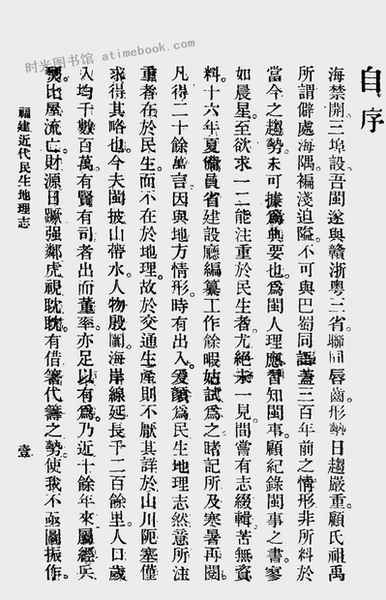 时光图书馆 atimebook.com
自序
海禁開三埠設吾閩遂與贛浙粤三省聯同脣齒形勢日趨嚴重顧氏祖禹
所謂僻處海隅褊淺迫隘不可與巴蜀同語蓋三百年前之情形非所料於
當今之趨勢未可據爲典要也爲閩人理應習知閩事顧紀錄閩事之書寥
如晨星至欲求一二能注重於民生者尤絕未一見間嘗有志綴輯苦無資
料十六年夏備員省建設廳編纂工作餘暇姑試爲之睹記所及寒暑再閱
凡得二十餘萬言因與地方情形時有出入爰籤爲民生地理志然意所注
重者在於民生而不在於地理故於交通生產則不厭其詳於山川阨塞僅
求得其略也今夫閩披山帶水人物殷闐海岸線延長千二百餘里人口歲
入均千數百萬有賢有司者出而董率亦足以有爲乃近十餘年來屢經兵
燹比屋流亡財源日蹶强鄰虎視耽耽有借箸代籌之勢使我不亟圖振作
福建近代民生地理志
壹